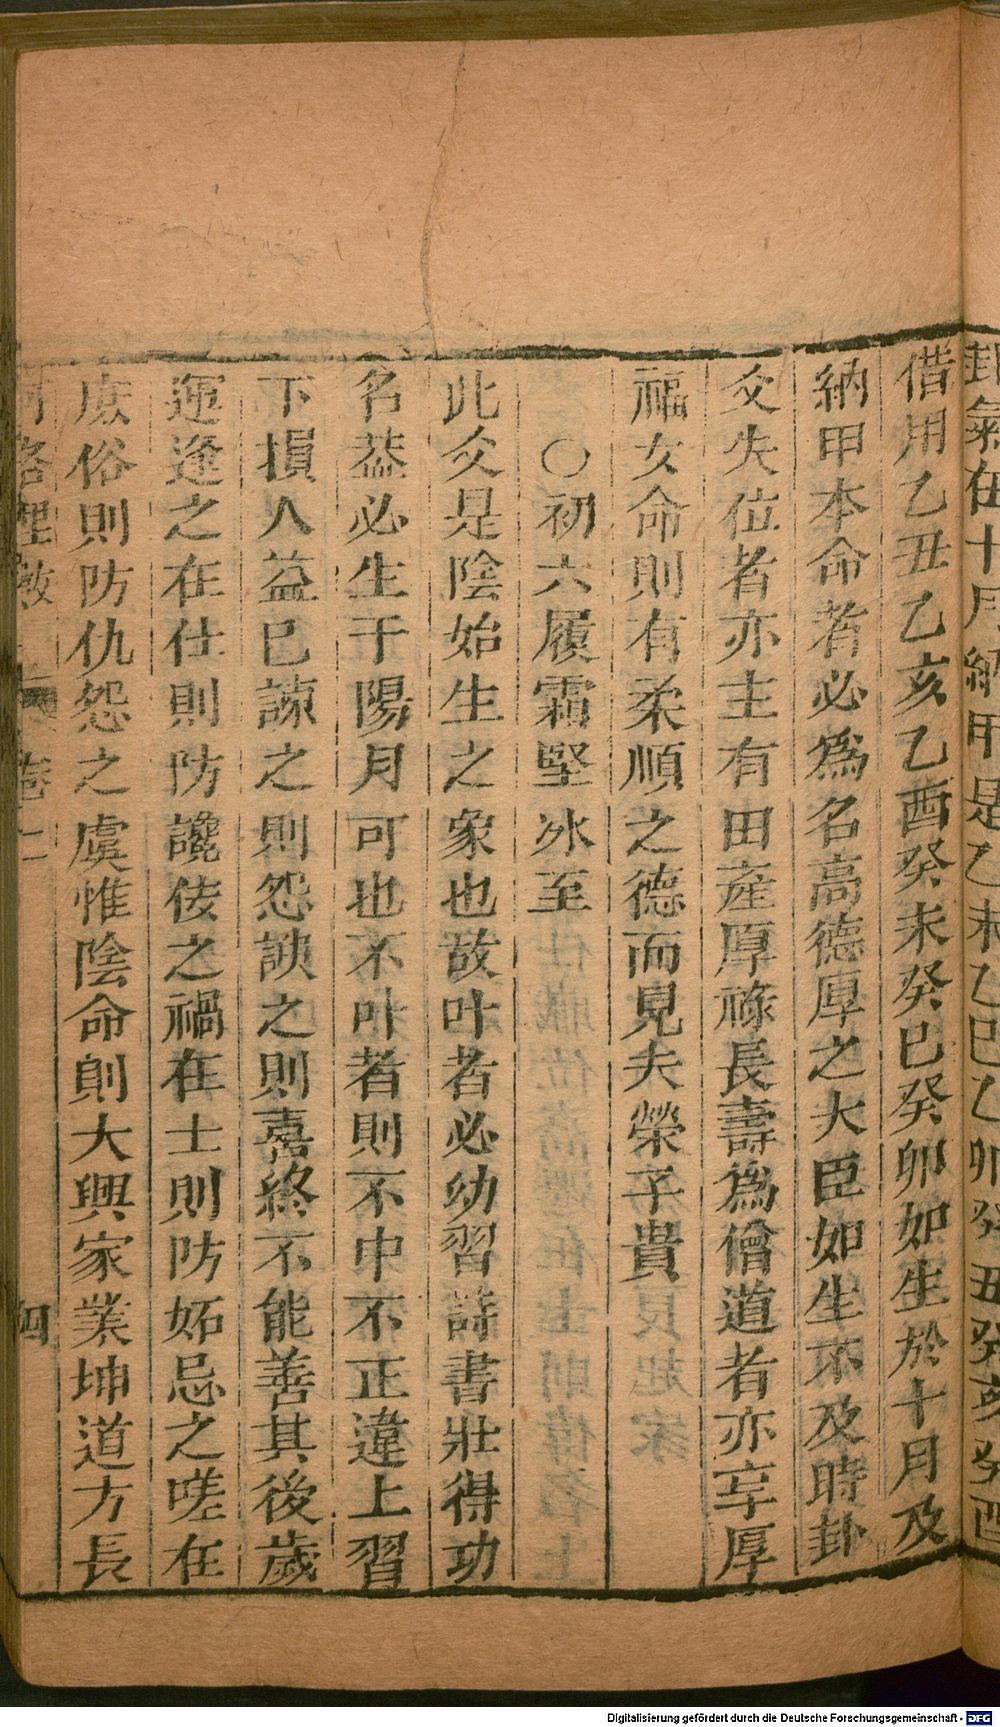 卦氣在十月納甲是乙未乙巳乙卯癸丑癸亥癸酉
借用乙丑乙亥乙酉癸未癸巳癸卯如生於十月及
納甲本命者必爲名高德厚之大臣如生不及時卦
爻失位者亦主有田産厚祿長壽爲僧道者亦享厚
福女命則有柔順之德而見夫榮子貴
○初六履霜堅氷至
此爻是陰始生之象也故叶者必幼習詩書壯得功
名葢必生于陽月可也不叶者則不中不正違上習
下損人益巳諫之則怨諛之則喜終不能善其後歲
運逢之在仕則防讒佞之禍在士則防妬忌之嗟在
庶俗則防仇怨之虞惟陰命則大興家業坤道方長
河洛理數 卷二 四
Digitalisierung gefördert durch die Deutsche Forschungsgemeinschaft - DFG